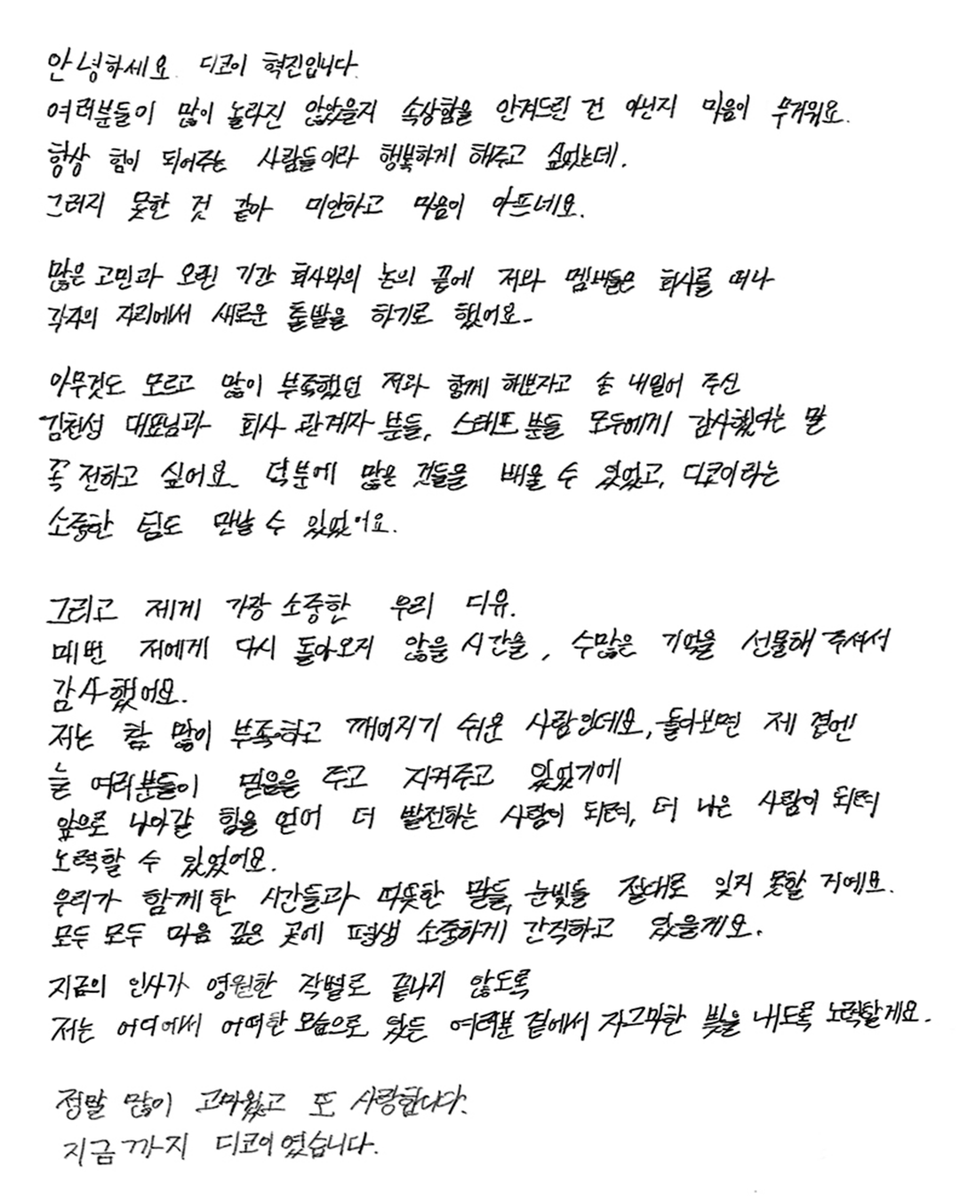 안녕하세요 디코이 혁진입니다.
여러분들이 많이 놀라진 않았을지 속상함을 안겨드린 건 아닌지 마음이 무거워요.
항상 힘이 되어주는 사람들이라 행복하게 해주고 싶었는데,
그러지 못한 것 같아 미안하고 마음이 아프네요.
많은 고민과 오랜 기간 회사와의 논의 끝에 저와 멤버들은 회사를 떠나
각자의 자리에서 새로운 출발을 하기로 했어요.
아무것도 모르고 많이 부족했던 저와 함께 해보자고 손 내밀어 주신
김천성 대표님과 회사 관계자 분들, 스태프 분들 모두에게 감사했다는 말
꼭 전하고 싶어요. 덕분에 많은 것들을 배울 수 있었고, 디코이라는
소중한 팀도 만날 수 있었어요.
그리고 제게 가장 소중한 우리 디유.
매번 저에게 다시 돌아오지 않을 시간을, 수많은 기억을 선물해 주셔서
감사했어요.
저는 참 많이 부족하고 깨어지기 쉬운 사람인데요, 돌아보면 제 곁엔
늘 여러분들이 믿음을 주고 지켜주고 있었기에
앞으로 나아갈 힘을 얻어 더 발전하는 사람이 되려, 더 나은 사람이 되려
노력할 수 있었어요.
우리가 함께한 시간들과 따뜻한 말들, 눈빛들 절대로 잊지 못할 거예요.
모두 모두 마음 깊은 곳에 평생 소중하게 간직하고 있을게요.
지금의 인사가 영원한 작별로 끝나지 않도록
저는 어디에서 어떠한 모습으로 있든 여러분 곁에서 자그마한 빛을 내도록 노력할게요.
정말 많이 고마웠고 또 사랑합니다.
지금까지 디코이였습니다.